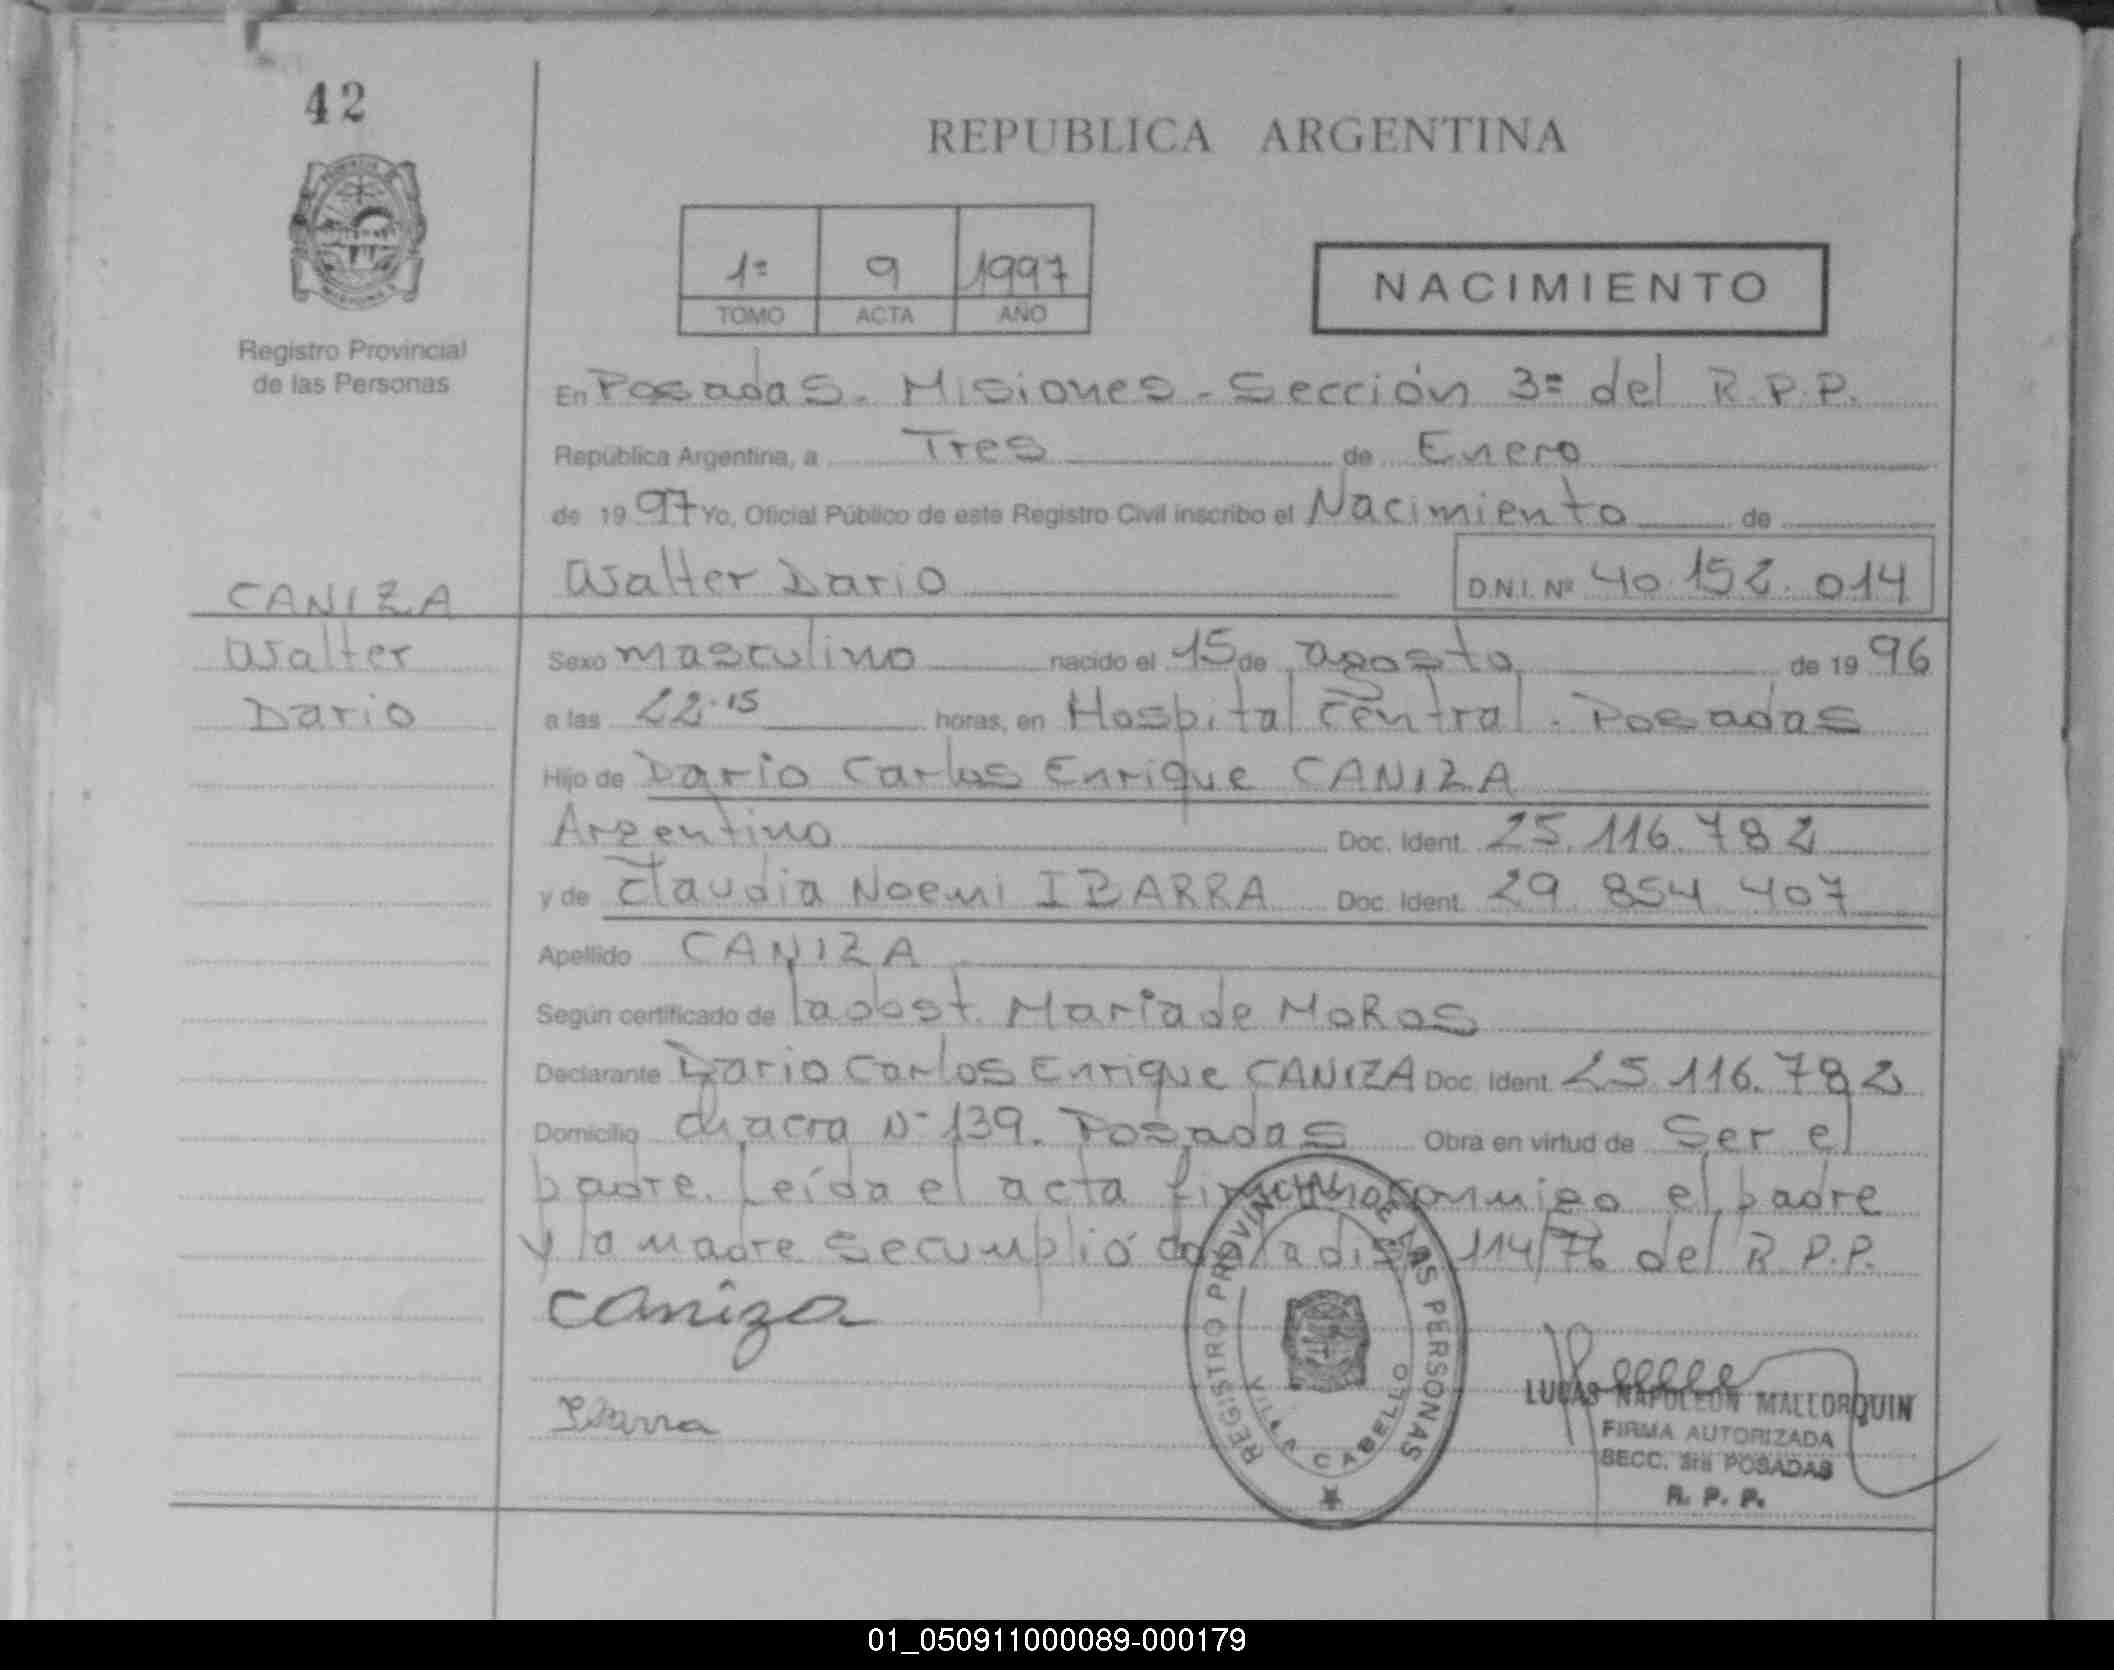 42
REPUBLICA ARGENTINA
1º 9 1997
TOMO ACTA AÑO
NACIMIENTO
Registro Provincial
de las Personas
En Posadas. Misiones - Sección 3ª del R.P.P.
República Argentina, a Tres de Enero
de 1997 Yo, Oficial Público de este Registro Civil inscribo el Nacimiento de
Walter Dario D.N.I. Nº 40.152.014
CANIZA
Walter
Dario
Sexo masculino nacido el 15 de agosto de 1996
a las 22.15 horas, en Hospital Central. Posadas
Hijo de Dario Carlos Enrique CANIZA
Argentino Doc. Ident. 25.116.782
y de Claudia Noemi IBARRA Doc. Ident. 29.854.407
Apellido CANIZA
Según certificado de la obst. Maria de MoRos
Declarante Dario Carlos Enrique CANIZA Doc. Ident. 25.116.782
Domicilio chacra Nº 139. Posadas Obra en virtud de Ser el
padre. Leída el acta firman conmigo el padre
y la madre se cumplió con la disp. 114/76 del R.P.P.
Caniza
Ibarra
REGISTRO PROVINCIAL DE LAS PERSONAS
VILLA CABELLO
LUCAS NAPOLEON MALLORQUIN
FIRMA AUTORIZADA
SECC. 3ra POSADAS
R. P. P.
01_050911000089-000179